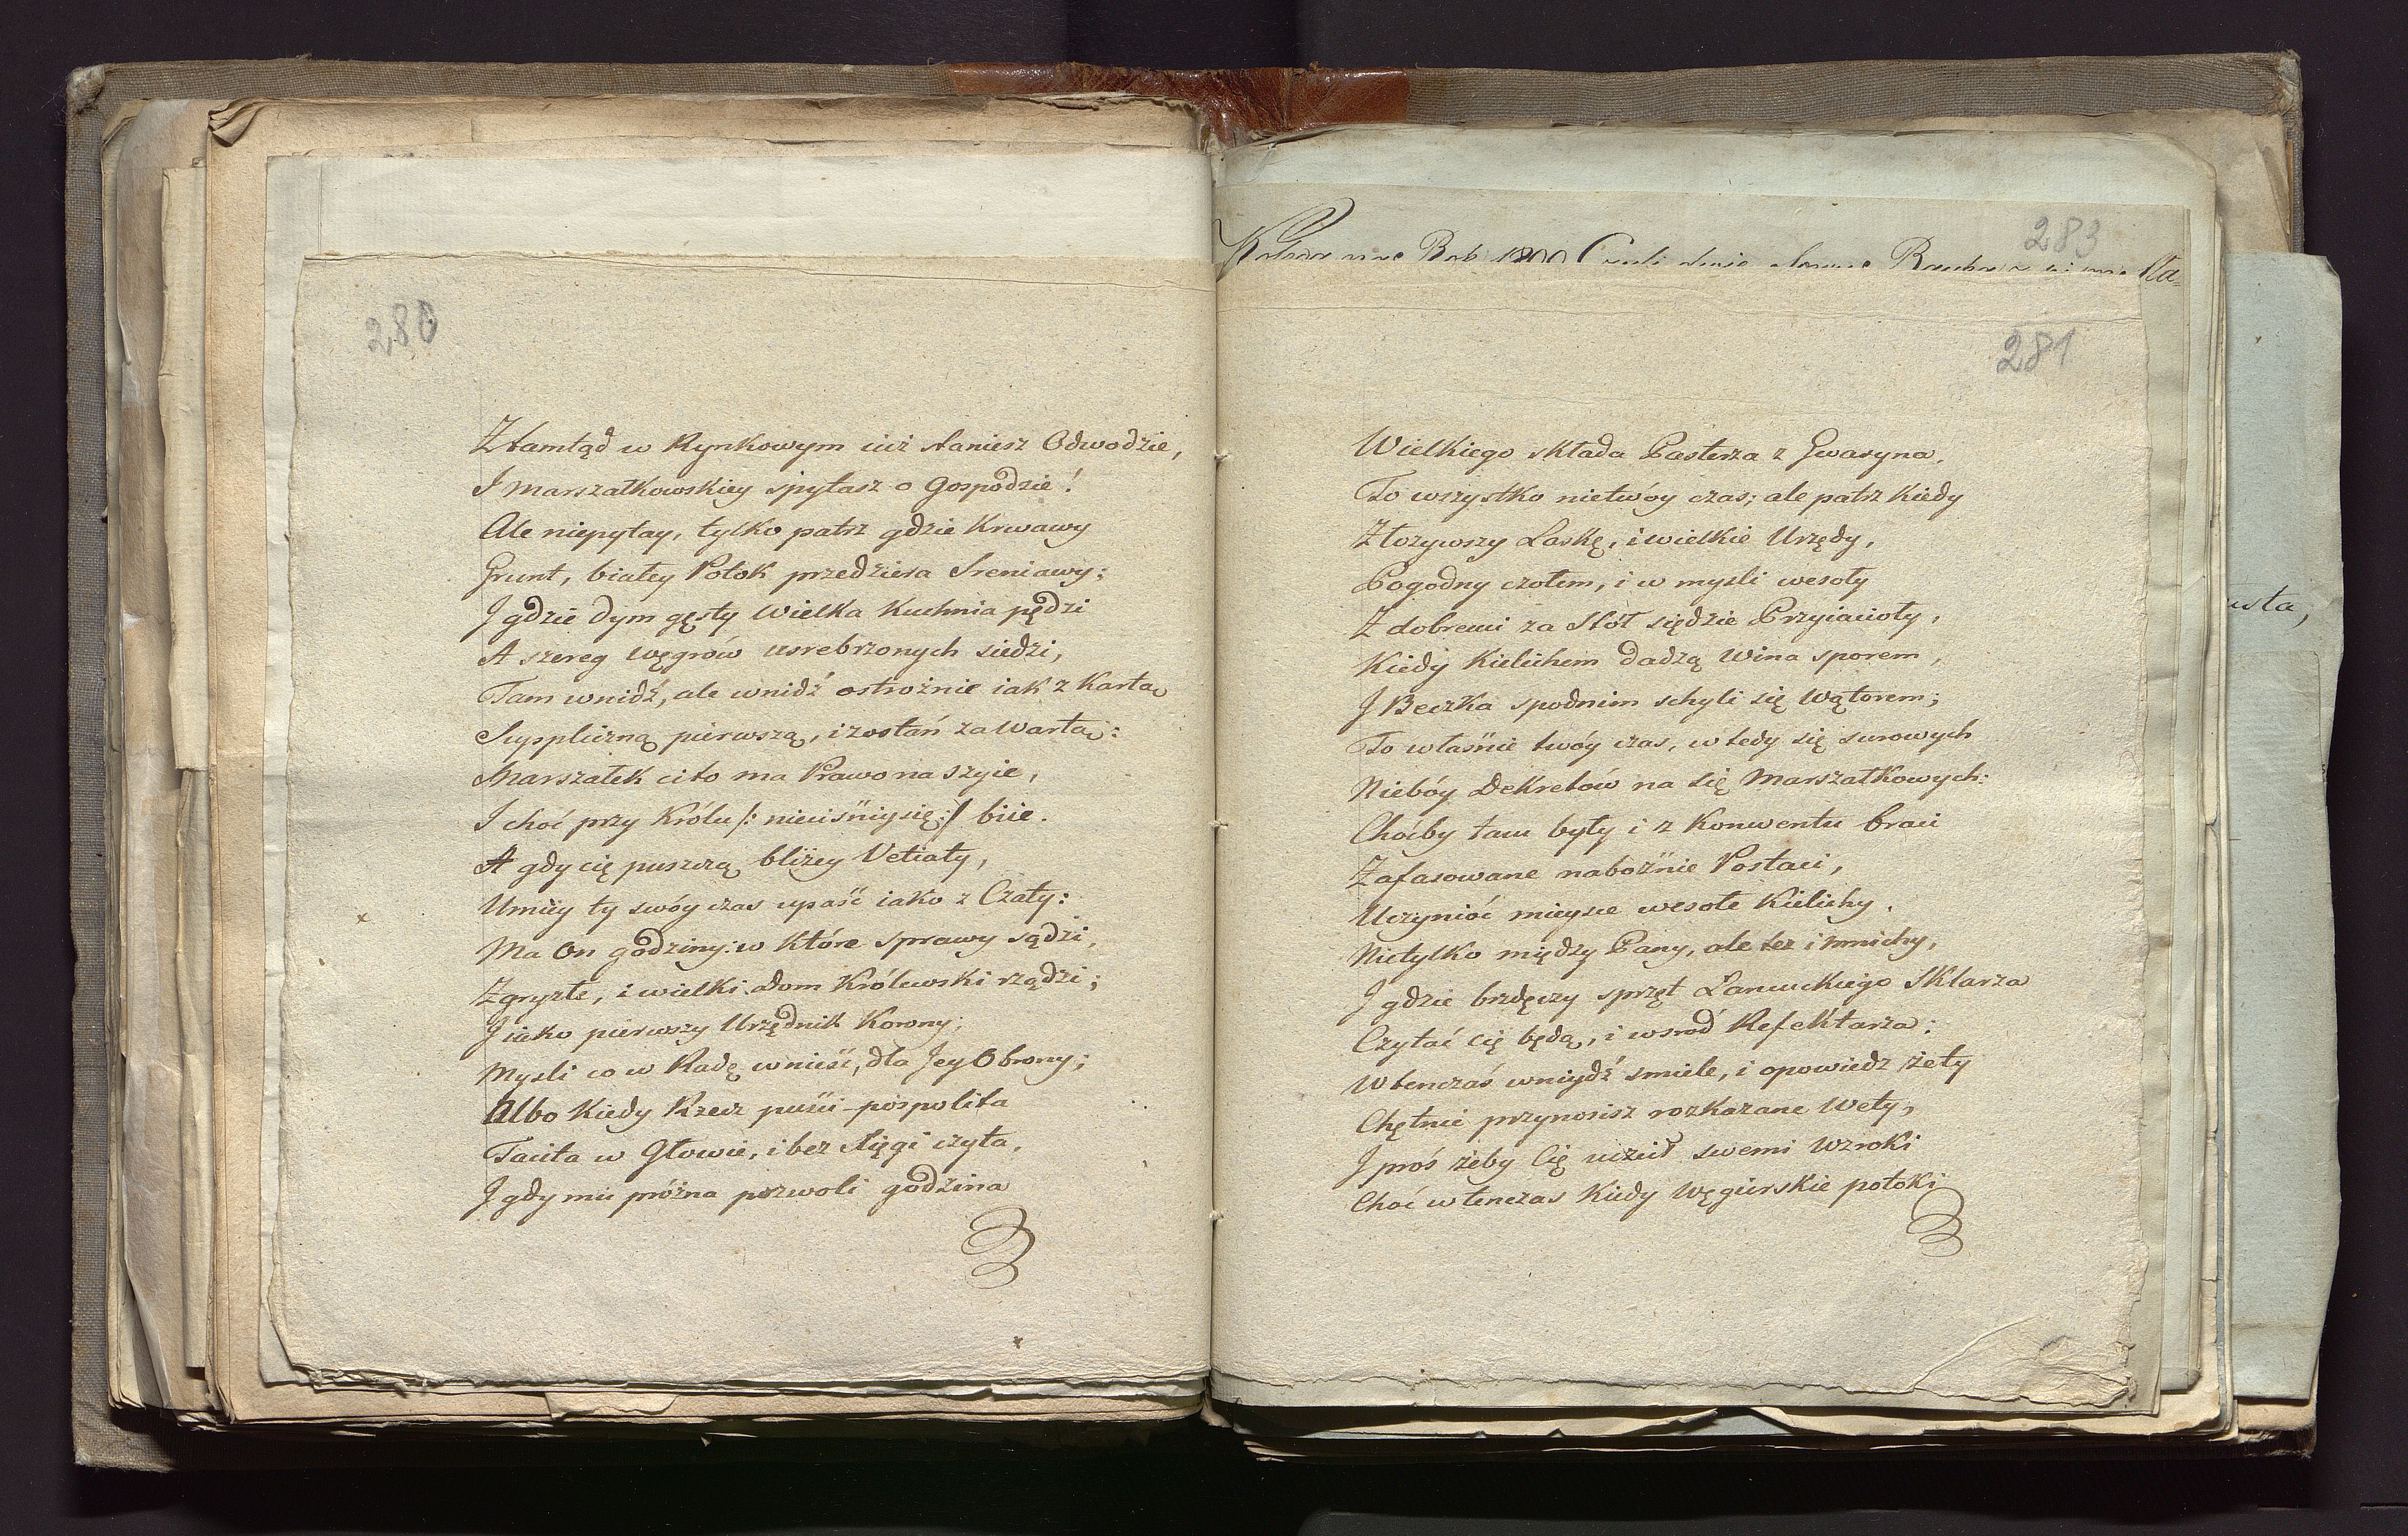 280
Ztamtąd w Rynkowym iuż staniesz Odwodzie,
I Marszałkowskiey spytasz o Gospodzie!
Ale niepytay, tylko patrz gdzie Krwawy
Grunt, białey Potok przedziera Sreniawy;
I gdzie dym gęsty Wielka Kuchnia pędzi
A szereg Węgrów usrebrzonych siedzi,
Tam wnidź, ale wnidź ostrożnie iak z Kartą
Suppliczną pierwszą, i zostań za Wartą:
Marszałek ci to ma Prawo na szyie,
I choć przy Królu /: nieciśniysię :/ biie.
A gdy cię puszczą bliżey Vetiały,
Umiey ty swóy czas upaść iako z Czaty:
Ma On godziny: w które sprawy sądzi,
Zgryzłe, i wielki Dom Królewski rządzi;
I iako pierwszy Urzędnik Korony;
Mysli co w Radę wnieść, dla Jey Obrony;
Albo Kiedy Rzecz puści-pospolita
Tacita w Głowie, i bez Xięgi czyta,
I gdy mu próżna pozwoli godzina
283
Kolęda na Rok 1800
281
Wielkiego składa Pasterza z Gwaryna,
To wszystko nietwóy czas; ale patrz kiedy
Złożywszy Laskę, i wielkie Urzędy,
Pogodny czołem, i w mysli wesoły
Z dobremi za Stół siędzie Przyiacioły,
Kiedy Kielichem dadzą Wina sporem,
I Beczka spodnim schyli się Wątorem;
To właśnie twóy czas, wtedy się surowych
Nieбóy Dekretów na się Marszałkowych:
Choćby tam były i z Konwentu braci
Zafasowane nabożnie Postaci,
Uczynióć mieysce wesołe Kielichy,
Nietylko między Pany, ale też i mnichy,
I gdzie brzdęczy sprzęt Łancuckiego Sklarza
Czytać cię będą, i wsrod Refektarza:
Wtenczas wniydź smiele, i opowiedz żety
Chętnie przynosisz rozkazane Wety,
I proś żeby Cię uczcił swemi Wzroki
Choć wtenczas Kiedy Węgierskie potoki